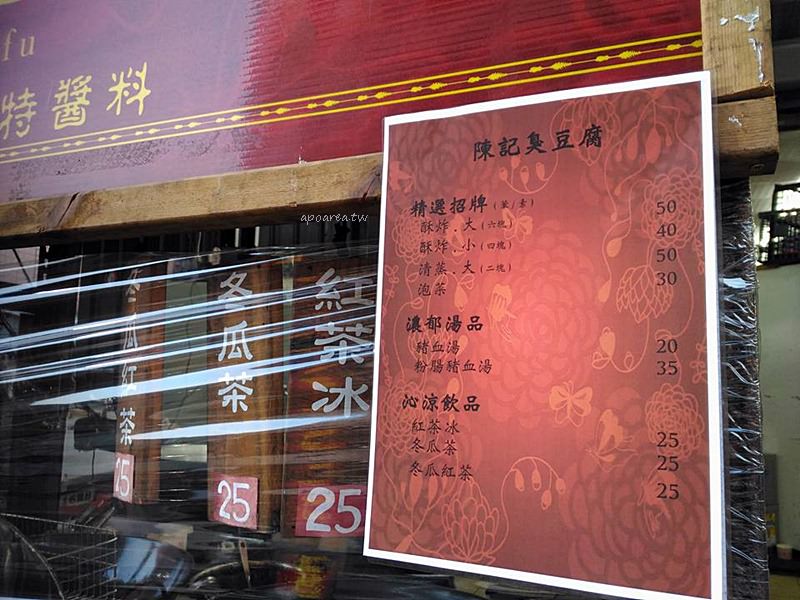 fu
特醬料
陳記臭豆腐
精選招牌(葷/素)
酥炸.大(六塊) 50
酥炸.小(四塊) 40
清蒸.大(二塊) 50
泡菜 30
濃郁湯品
豬血湯 20
粉腸豬血湯 35
沁涼飲品
紅茶冰 25
冬瓜茶 25
冬瓜紅茶 25
apoarea.tw
冬瓜紅茶
25
冬瓜茶
25
紅茶冰
25